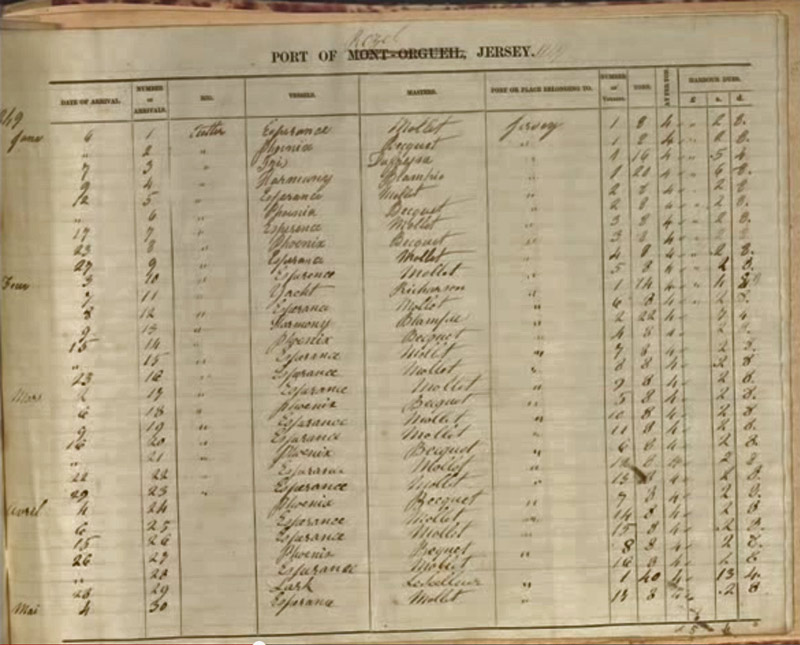 Rozel
PORT OF MONT-ORGUEIL, JERSEY.
DATE OF ARRIVAL. NUMBER OF ARRIVALS. RIG. VESSEL. MASTERS. PORT OR PLACE BELONGING TO. NUMBER OF Voyages. TONS. HARBOUR DUES.
£ s. d.
6 1 Cutter Esperance Mollet Jersey 1 8 4 " 2 8.
" 2 " Phoenix Becquet " 1 8 4 " 2 8.
7 3 " " 1 16 4 " 5 4
9 4 " Harmony Blampié " 1 20 4 " 6 8.
12 5 " Esperance Mollet " 2 8 4 " 2 8.
" 6 " Phoenix Becquet " 2 8 4 " 2 8.
17 7 " Esperance Mollet " 3 8 4 " 2 8.
23 8 " Phoenix Becquet " 3 8 4 " 2 8.
27 9 " Esperance Mollet " 4 8 4 " 2 8.
3 10 " Esperance Mollet " 5 8 4 " 2 8.
7 11 " Yacht Richarson " 1 14 4 " 4 8
8 12 " Esperance Mollet " 6 8 4 " 2 8.
9 13 " Harmony Blampié " 2 22 4 " 7 4
15 14 " Phoenix Becquet " 4 8 4 " 2 8.
" 15 " Esperance Mollet " 7 8 4 " 2 8.
23 16 " Esperance Mollet " 8 8 4 " 2 8
Mars 2 17 " Esperance Mollet " 9 8 4 " 2 8.
6 18 " Phoenix Becquet " 5 8 4 " 2 8.
9 19 " Esperance Mollet " 10 8 4 " 2 8.
16 20 " Esperance Mollet " 11 8 4 " 2 8.
" 21 " Phoenix Becquet " 6 8 4 " 2 8
22 22 " Esperance Mollet " 12 8 4 " 2 8.
29 23 " Esperance Mollet " 13 8 4 " 2 8.
Avril 4 24 Phoenix Becquet " 7 8 4 " 2 8.
6 25 Esperance Mollet " 14 8 4 " 2 8
15 26 Esperance Mollet " 15 8 4 " 2 8.
26 27 Phoenix Becquet " 8 8 4 " 2 8.
" 28 Esperance Mollet " 16 8 4 " 2 8
28 29 Lark " 1 40 4 " 13 4.
Mai 4 30 Esperance Mollet " 8 " 2 8